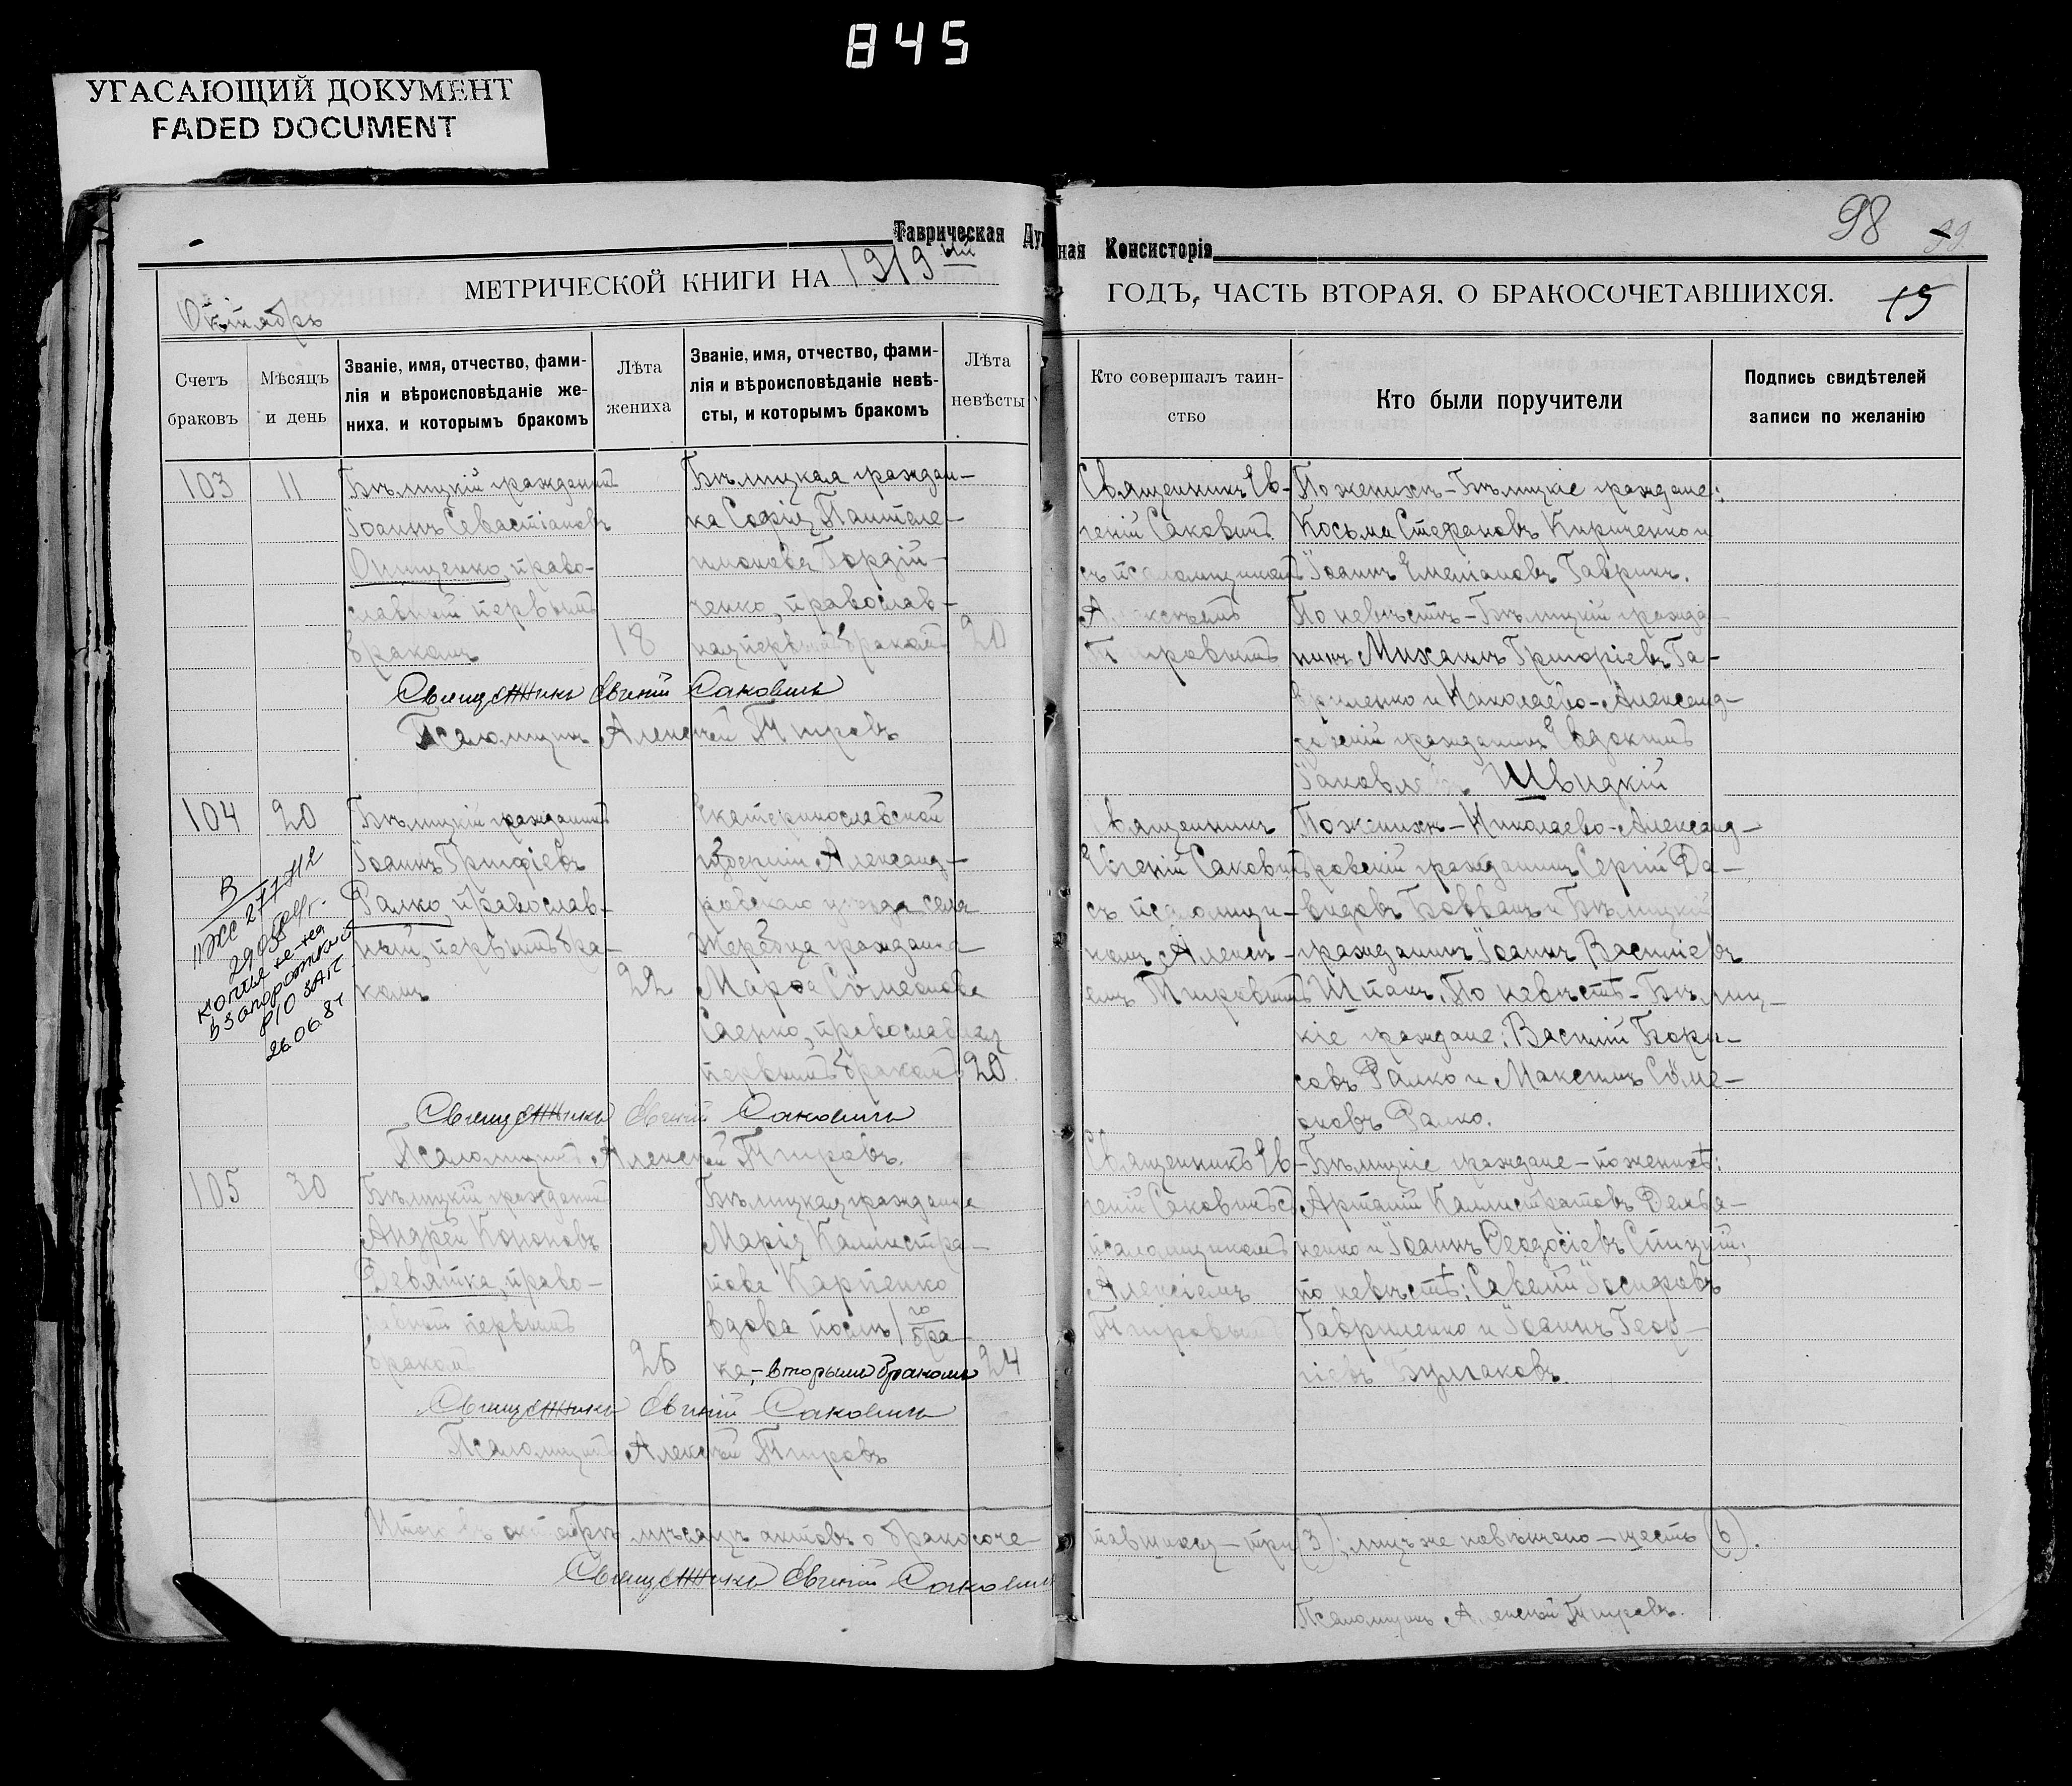 845
УГАСАЮЩИЙ ДОКУМЕНТ
FADED DOCUMENT
Таврическая Духовная Консисторія
98
99.
МЕТРИЧЕСКОЙ КНИГИ НА 1919ый
ГОДЪ, ЧАСТЬ ВТОРАЯ, О БРАКОСОЧЕТАВШИХСЯ.
15
Октябрь
Счетъ
браковъ
Мѣсяцъ
и день
Званіе, имя, отчество, фами-
лія и вѣроисповѣданіе же-
ниха, и которымъ бракомъ
Лѣта
жениха
Званіе, имя, отчество, фами-
лія и вѣроисповѣданіе невѣ-
сты, и которымъ бракомъ
Лѣта
невѣсты
Кто совершалъ таин-
ство
Кто были поручители
Подпись свидѣтелей
записи по желанію
103
11
Бѣлицкій гражданинъ
Іоаннъ Севастіановъ
Онищенко, право-
славный первымъ
бракомъ
18
Бѣлицкая граждан-
ка Софія Пантеле-
имонова Гордій-
ченко, православ-
ная первымъ бракомъ
20
Священникъ Ев-
геній Саковичъ
съ псаломщикомъ
Алексѣемъ
По женихѣ - Бѣлицкіе граждане:
Косьма Стефановъ Кириченко и
Іоаннъ Емеліановъ Гавринъ.
По невѣстѣ - Бѣлицкій гражда-
нинъ Михаилъ Григоріевъ Га-
вриленко и Николаево-Александ-
ровскій гражданинъ Евдокимъ
Іаковлевъ Швидкій
Священникъ Евгеній Саковичъ
Псаломщикъ Алексѣй
104
20
Бѣлицкій гражданинъ
Іоаннъ Григоріевъ
Ралко, православ-
ный, первымъ бра-
комъ
22
Екатеринославской
губерніи Александ-
ровскаго уѣзда села
Жеребца гражданка
Марѳа Сѵмеонова
Саенко, православная
первымъ бракомъ
20.
Священникъ
Евгеній Саковичъ
съ псаломщи-
комъ Алексѣ-
емъ
По женихѣ - Николаево-Александ-
ровскій гражданинъ Сергій Да-
видовъ Бовванъ и Бѣлицкій
гражданинъ Іоаннъ Василіевъ
Шпакъ. По невѣстѣ - Бѣлиц-
кіе граждане: Василій Бори-
совъ Ралко и Максимъ Сѵме-
оновъ Ралко.
В
IIЖС 277712
копие
в Запорожский
ЗАГС
26.06.87
Священникъ Евгеній Саковичъ
Псаломщикъ Алексѣй
105
30
Бѣлицкій гражданинъ
Андрей Кононовъ
Девятка, право-
славный первымъ
бракомъ
25
Бѣлицкая гражданка
Марія Каллистра-
това Карпенко
вдова послѣ 1го бра-
ка, - вторымъ бракомъ
24
Священникъ Ев-
геній Саковичъ съ
псаломщикомъ
Алексіемъ
Бѣлицкіе граждане - по женихѣ:
Артемій Каллистратовъ Демья-
ненко и Іоаннъ Ѳеодосіевъ Спицкій;
по невѣстѣ: Савелій Іосифовъ
Гавриленко и Іоаннъ Геор-
гіевъ Булгаковъ.
Священникъ Евгеній Саковичъ
Псаломщикъ Алексѣй
Итого въ октябрѣ мѣсяцѣ актовъ о бракосоче-
тавшихся - три (3); лицъ же повѣнчано - шесть (6).
Священникъ Евгеній Саковичъ
Псаломщикъ Алексѣй